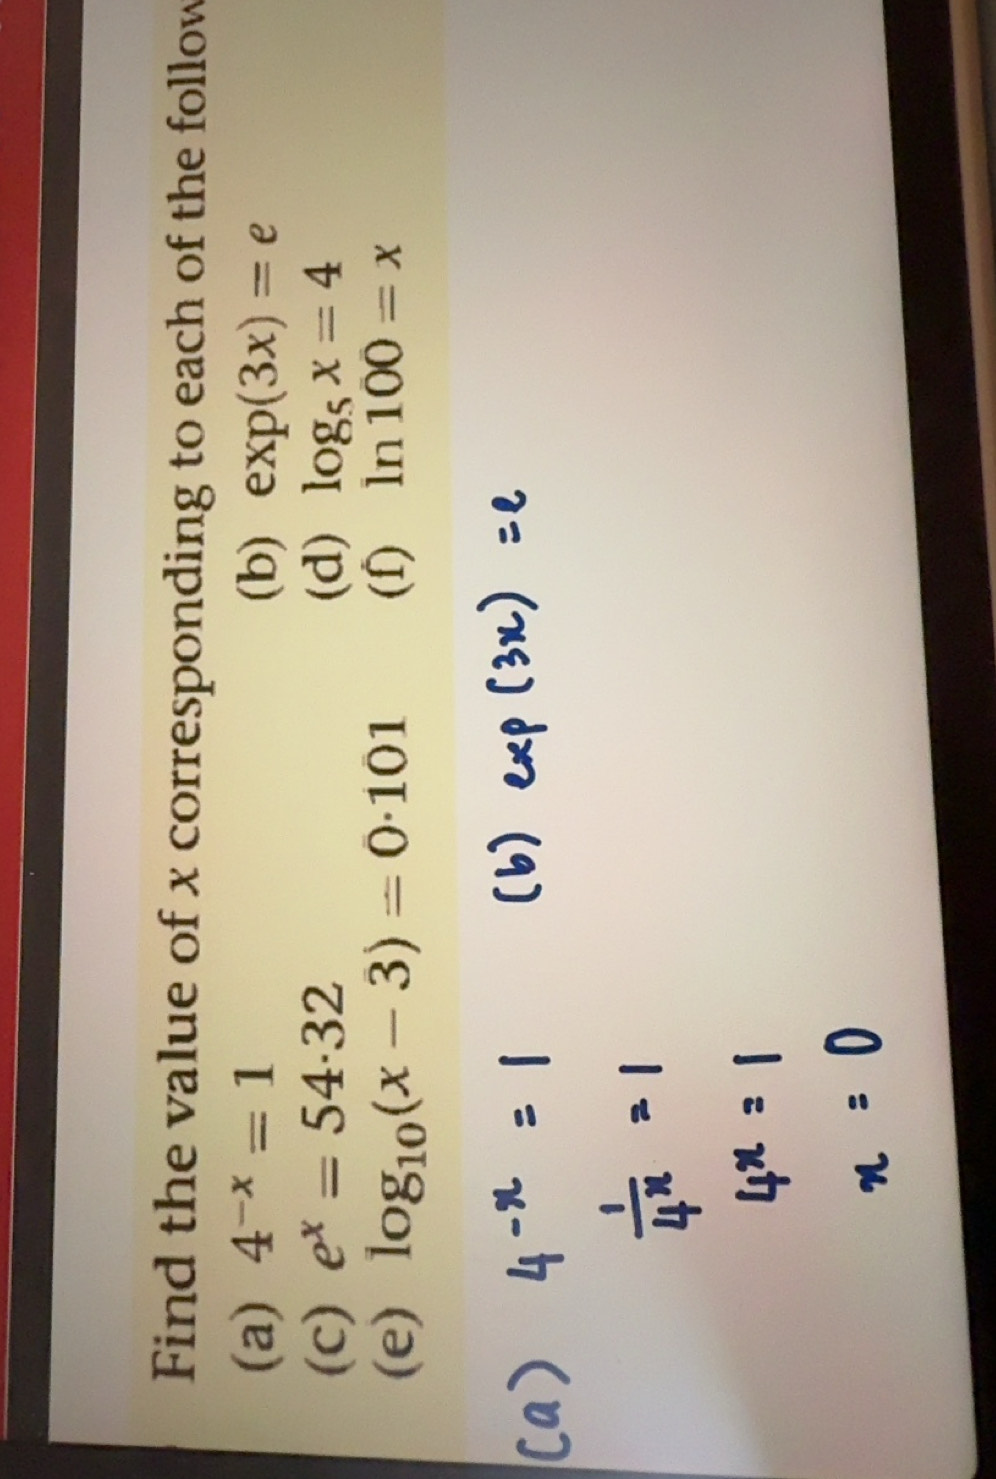 Find the value of x corresponding to each of the follow
(a) 4⁻ˣ = 1 (b) exp(3x) = e
(c) eˣ = 54·32 (d) log₅ x = 4
(e) log₁₀(x − 3) = 0·101 (f) ln 100 = x
(a) 4⁻ˣ = 1 (b) exp (3x) = e
1/4ˣ = 1
4ˣ = 1
x = 0